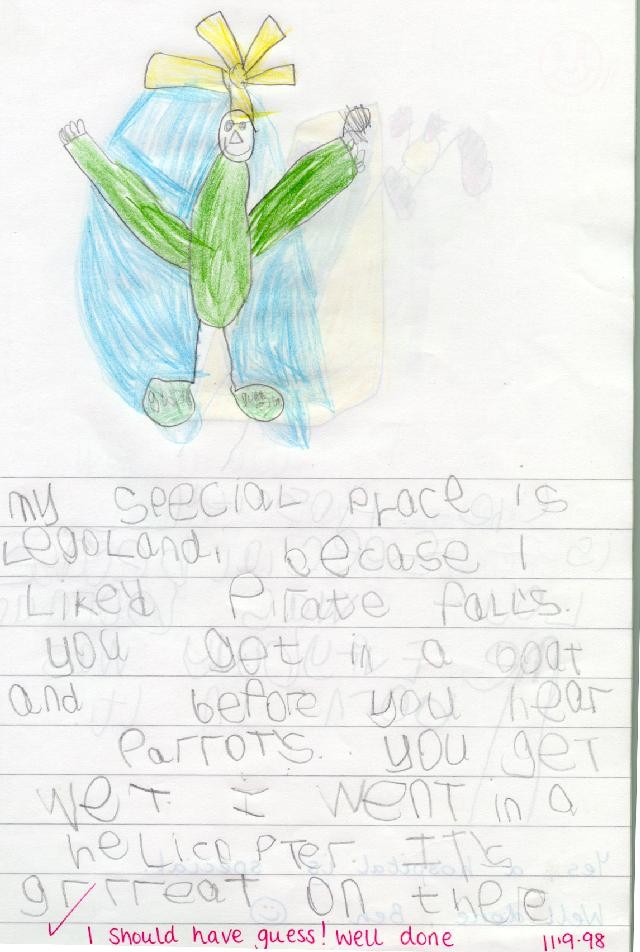 my special place is
LegoLand, becase I
Liked Pirate falls.
you get in a boat
and before you hear
Parrots. you get
wet. I went in a
heLicopter IT's
grrreat on there
I should have guess! Well done
11.9.98